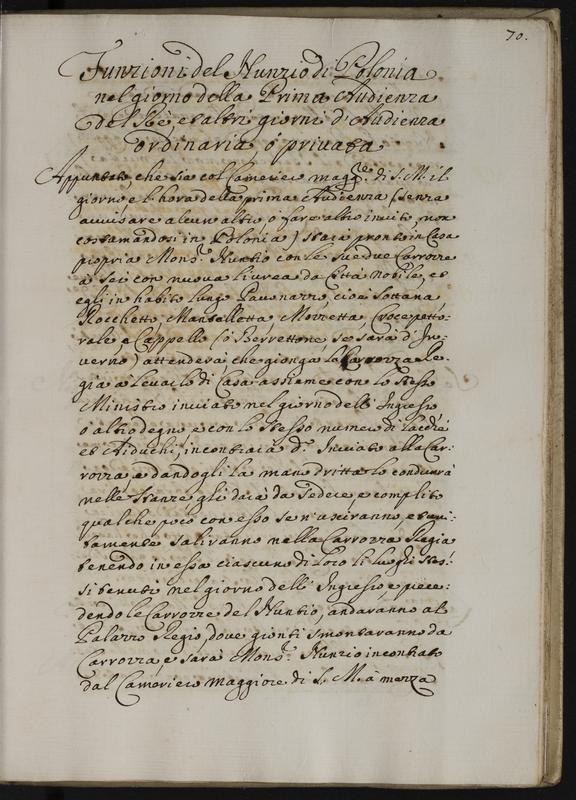 70.
Funzioni del Nunzio di Polonia
nel giorno della Prima Audienza
del Rè, et altri giorni d'Audienza
ordinaria ò privata
Appuntato, che sia col Cameriero magg.re di S. M. il
giorno e l'hora della prima Audienza (senza
avvisare alcun altro ò fare altro invito, non
costumandosi in Polonia) starà pronto in Casa
propria Mons.r Nuntio con le sue due Carrozze
à sei con nuova livrea da Città nobile, et
egli in habito lungo Pavonazzo, cioè sottana,
Rocchetto, Mantelletta, Mozzetta, Croce petto-
rale, e Cappello (ò Berrettone se sarà d'In-
verno) attenderà che gionga la Carrozza Re-
gia à levarlo di Casa assieme con lo stesso
Ministro inviato nel giorno dell'Ingresso
ò altro degno e con lo stesso numero di lacchè
et Aiduchi, incontrarà d.o Inviato alla Car-
rozza, e dandogli la mano dritta lo condurrà
nelle stanze gli darà da sedere, e complito
qualche poco con esso se n'usciranno, et uni-
tamente saliranno nella Carrozza Regia
tenendo in essa ciascuno di loro li luoghi stes-
si tenuti nel giorno dell'Ingresso, e prece-
dendo le Carrozze del Nuntio, andaranno al
Palazzo Regio, dove gionti smontaranno da
Carrozza, e sarà Mons.r Nunzio incontrato
dal Cameriero maggiore di S. M. à mezza